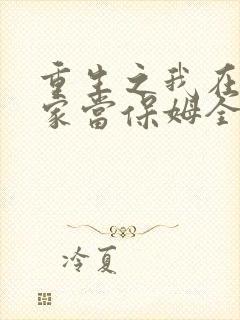 重生之我在
家当保姆全
冷夏